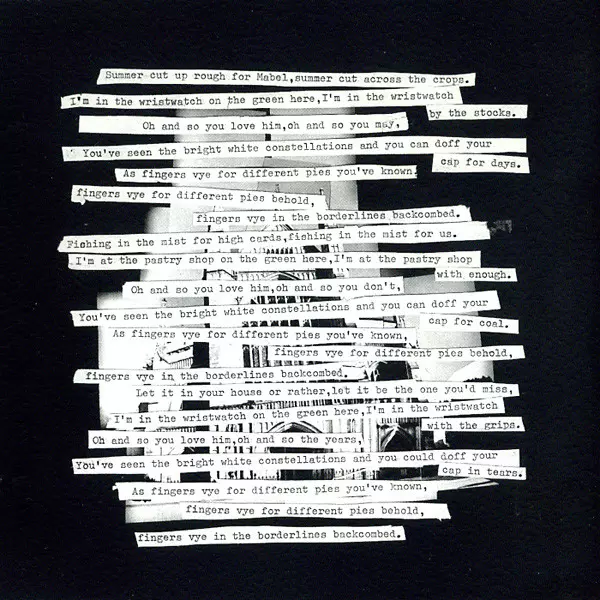 Summer cut up rough for Mabel,summer cut across the crops.
I'm in the wristwatch on the green here,I'm in the wristwatch
by the stocks.
Oh and so you love him,oh and so you may,
You've seen the bright white constellations and you can doff your
cap for days.
As fingers vye for different pies you've known,
fingers vye for different pies behold,
fingers vye in the borderlines backcombed.
Fishing in the mist for high cards,fishing in the mist for us.
I'm at the pastry shop on the green here,I'm at the pastry shop
with enough.
Oh and so you love him,oh and so you don't,
You've seen the bright white constellations and you can doff your
cap for coal.
As fingers vye for different pies you've known,
fingers vye for different pies behold,
fingers vye in the borderlines backcombed.
Let it in your house or rather,let it be the one you'd miss,
I'm in the wristwatch on the green here,I'm in the wristwatch
with the grips.
Oh and so you love him,oh and so the years,
You've seen the bright white constellations and you could doff your
cap in tears.
As fingers vye for different pies you've known,
fingers vye for different pies behold,
fingers vye in the borderlines backcombed.